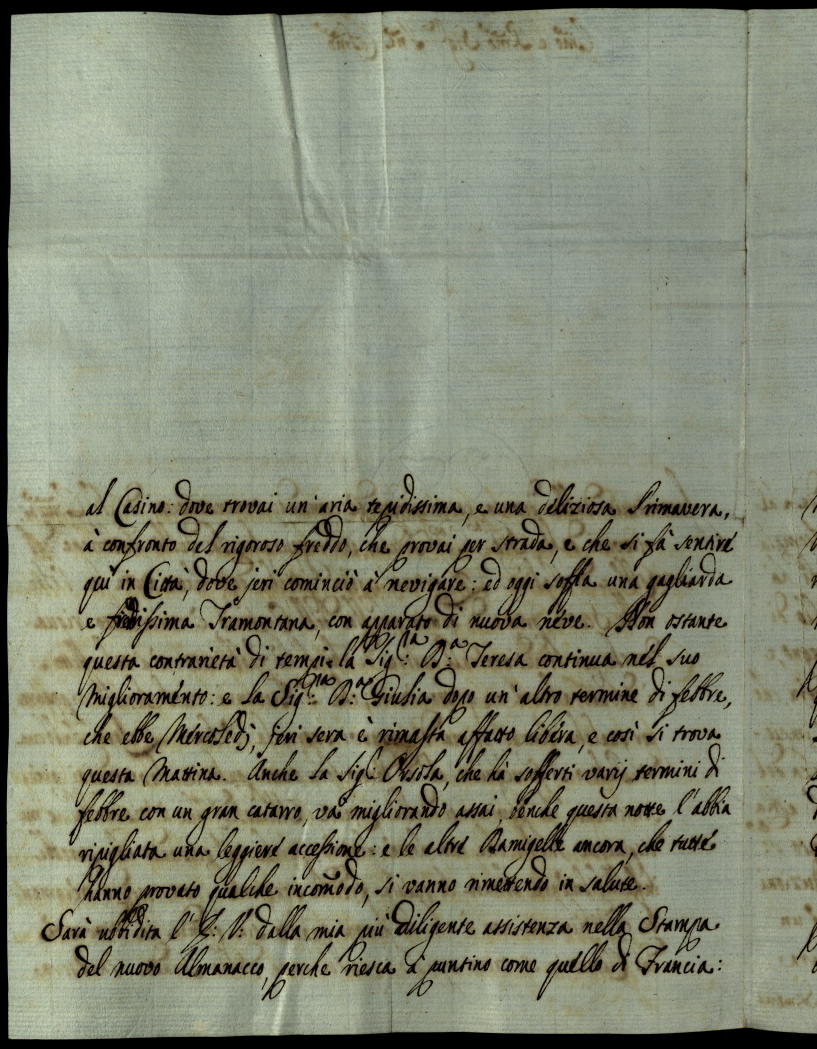 al Casino: dove trovai un'aria tepidissima, e una deliziosa Primavera,
à confronto del rigoroso freddo, che provai per strada, e che si fà sentire
quì in Città, dove jeri cominciò à nevigare: ed oggi soffla una gagliarda
e fredissima Tramontana, con apparato di nuova neve. Non ostante
questa contrarietà di tempi la Sig.ra B.a Teresa continua nel suo
miglioramento: e la Sig.ra B.a Giulia dopo un'altro termine di febbre,
che ebbe Mercoledì, jeri sera è rimasta affatto libera, e così si trova
questa mattina. Anche la Sig.a Orsola, che hà sofferti varij termini di
febbre con un gran catarro, và migliorando assai, benche questa notte l'abbia
ripigliata una leggiere accessione: e le altre Damigelle ancora, che tutte
hanno provato qualche incomodo, si vanno rimettendo in salute.
Sarà ubbidita l'E: V: dalla mia più diligente assistenza nella Stampa
del nuovo Almanacco, perche riesca à puntino come quello di Francia: